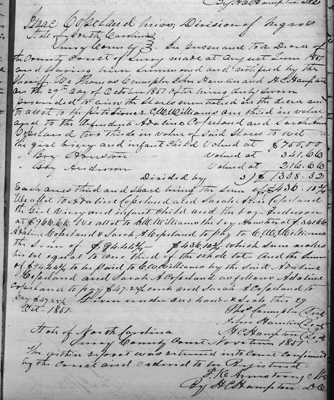 By H C Hampton D C
Isaac Copeland Decd Division of Negroes
State of North Carolina
Surry County In pursuance to a Decree of
the County Court of Surry made at August Term 1857
and having been summoned and by the
Sheriff We Thomas John Hamlin and H C Hampton
on the 29th day of October 1857 after being duly sworn
proceeded to divide the slaves mentioned in the decree and
to allot to the petitioners C W Williams one third in value
and to the Adaline Copeland and Sarah Ann
Copeland two thirds in value of said slaves to wit
the girl and infant child valued at $ 750.00
" Boy Houston valued at 341.66
" Boy Anderson valued at 216.66
Divided by 3) $ 1308.32
Each ones third and share being the sum of $436.10⅔
We allot to Adaline Copeland and Sarah Ann Copeland
the girl and infant child and the boy Anderson
at $966.66 We allot to C W Williams the boy Houston at $341.66
Adaline Copeland & Sarah A Copeland to pay to C W Williams
the sum of $94.44⅔ $436.10⅔ which sum makes
his lot equal to one third of the whole lot and the sum
of $94.44⅔ to be paid to C W Williams by the said Adaline
Copeland and Sarah A Copeland as follows Adaline
Copeland to pay $47.22⅓ and Sarah A Copeland to
pay $47.22⅓ Given under our hands & seals this 29
Oct 1857
John Hamlin
H C Hampton
State of North Carolina
Surry County Court Nov Term 1857
The within report was returned into Court confirmed
by the Court and ordered to be Registered
F K Armstrong
By H C Hampton D C